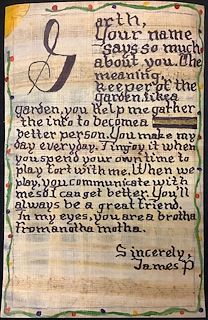 Garth,
Your name
says so much
about you. The
meaning,
keeper of the
garden. Like a
garden, you help me gather
the info to become a
better person. You make my
day everyday. I injoy it when
you spend your own time to
play fort with me. When we
play, you communicate with
me so I can get better. You'll
always be a great friend.
In my eyes, you are a brotha
from anotha motha.
Sincerely,
James P